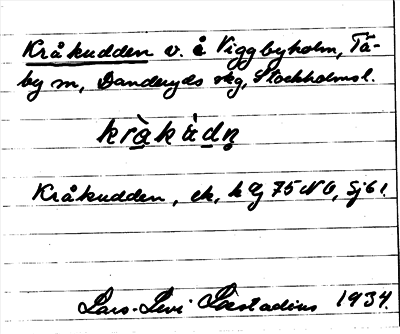 Kråkudden v. å Viggbyholm, Tä-
by sn, Danderyds skg, Stockholms l.
kråkàdn̥
Kråkudden, ek, k bl 75 NO, Sj61.
Lars-Levi Læstadius 1934.